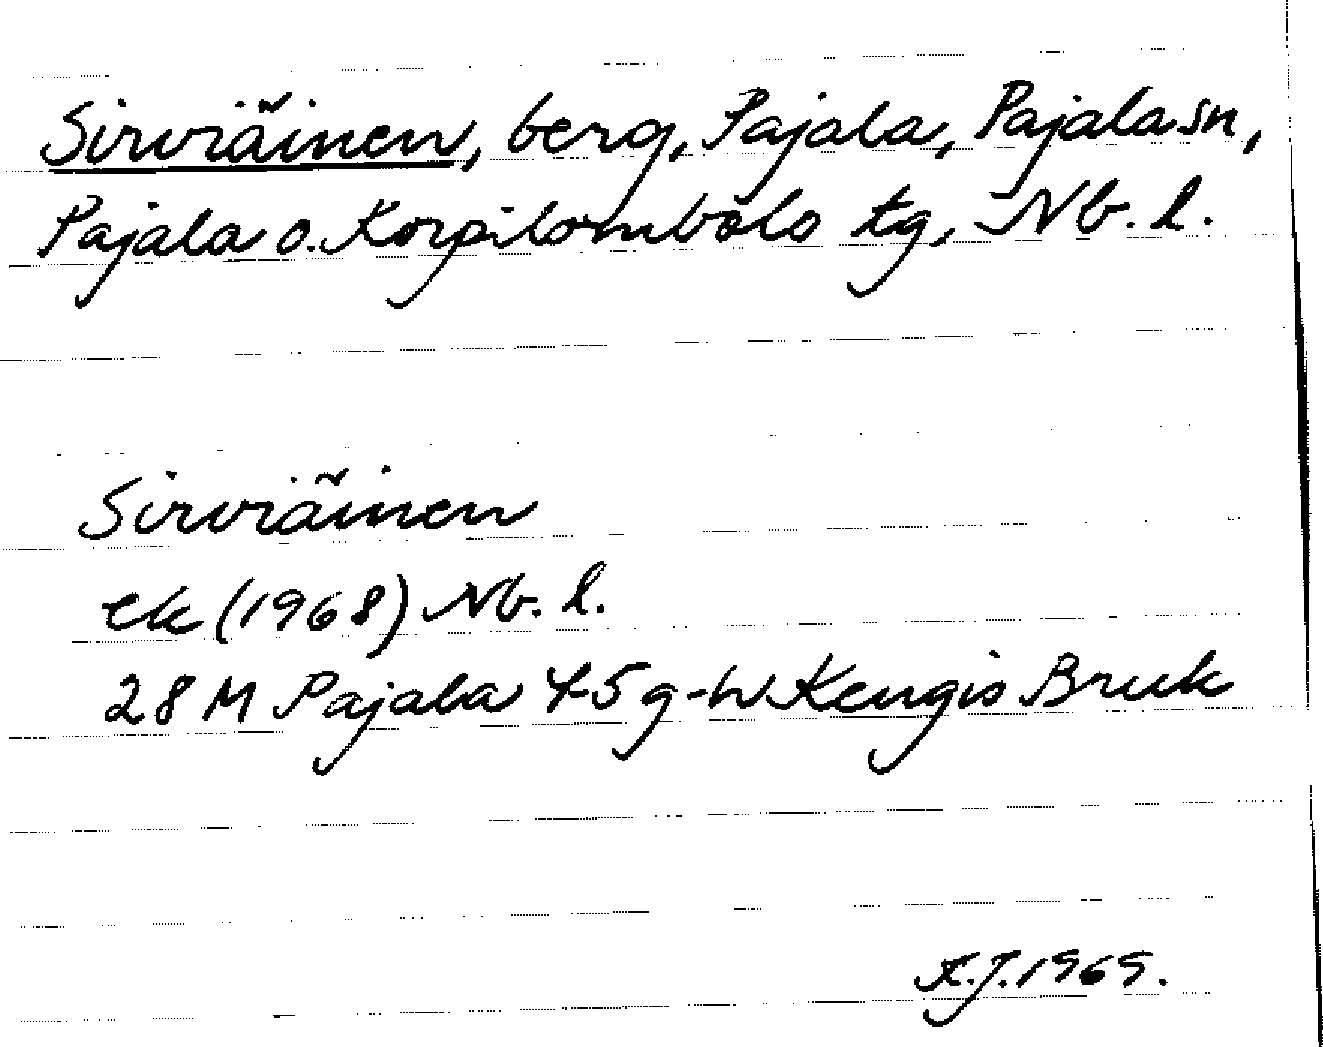 Sirviäinen, berg, Pajala, Pajala sn,
Pajala o. Korpilombolo tg, Nb. l.
Sirviäinen
ek (1968) Nb. l.
28 M Pajala 4-5 g-h Kengis Bruk
K.J. 1969.